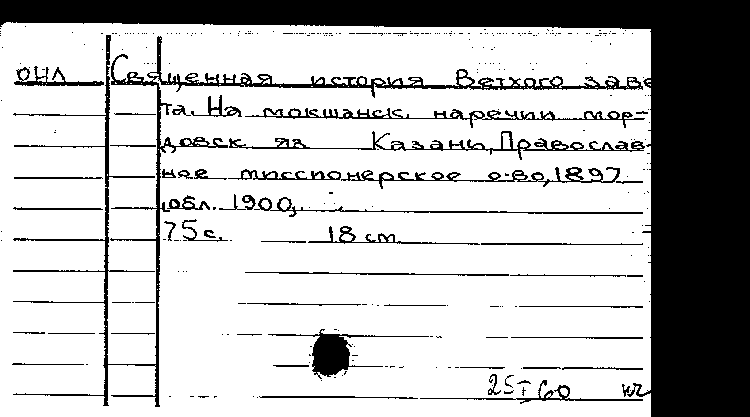 ОНЛ Священная история Ветхого заве
та. На мокшанск. наречии мор-
довск яз Казань, Православ-
ное миссионерское о-во, 1897
обл. 1900,
75 с. 18 см
25 I 60